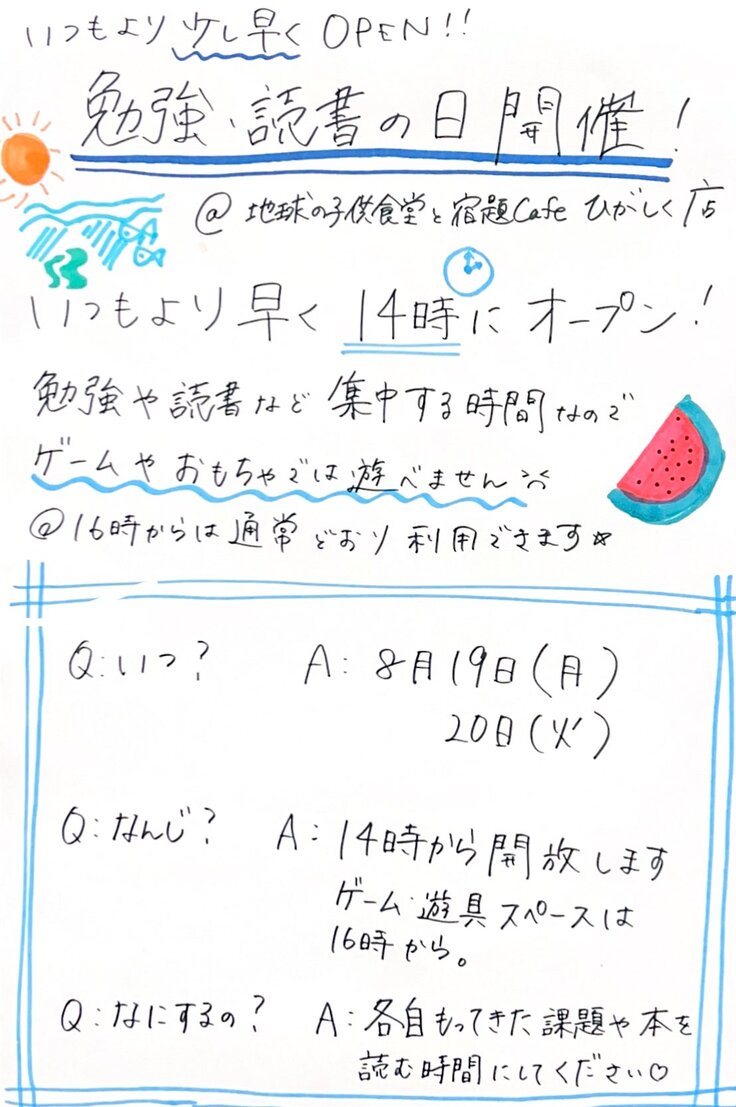 いつもより少し早くOPEN!!
勉強・読書の日開催!
@地球の子供食堂と宿題Cafe ひがしく店
いつもより早く14時にオープン!
勉強や読書など集中する時間なので
ゲームやおもちゃでは遊べません
@16時からは通常どおり利用できます☆
Q:いつ? A:8月19日(月)
20日(火)
Q:なんじ? A:14時から開放します
ゲーム・遊具スペースは
16時から。
Q:なにするの? A:各自もってきた課題や本を
読む時間にしてください♡